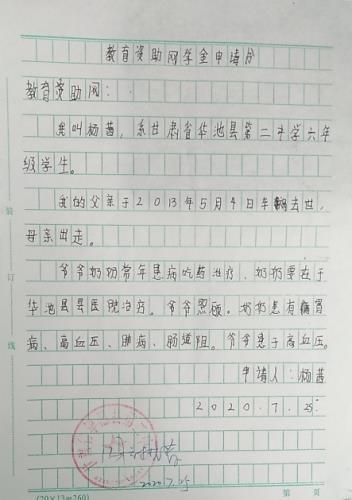 教育资助网学金申请份
教育资助网：
我叫杨茜，系甘肃省华池县第二中学六年
级学生。
我的父亲于2013年5月4日车祸去世，
母亲出走。
爷爷奶奶常年患病吃药治疗、奶奶要在于
华池县县医院治疗。爷爷照顾。奶奶患有糖骨
病、高血压、肺病、肠道阻。爷爷患于高血压。
申请人：杨茜
2020.7.25
装
订
线
2020.7.25
(20×13=260)
第 页